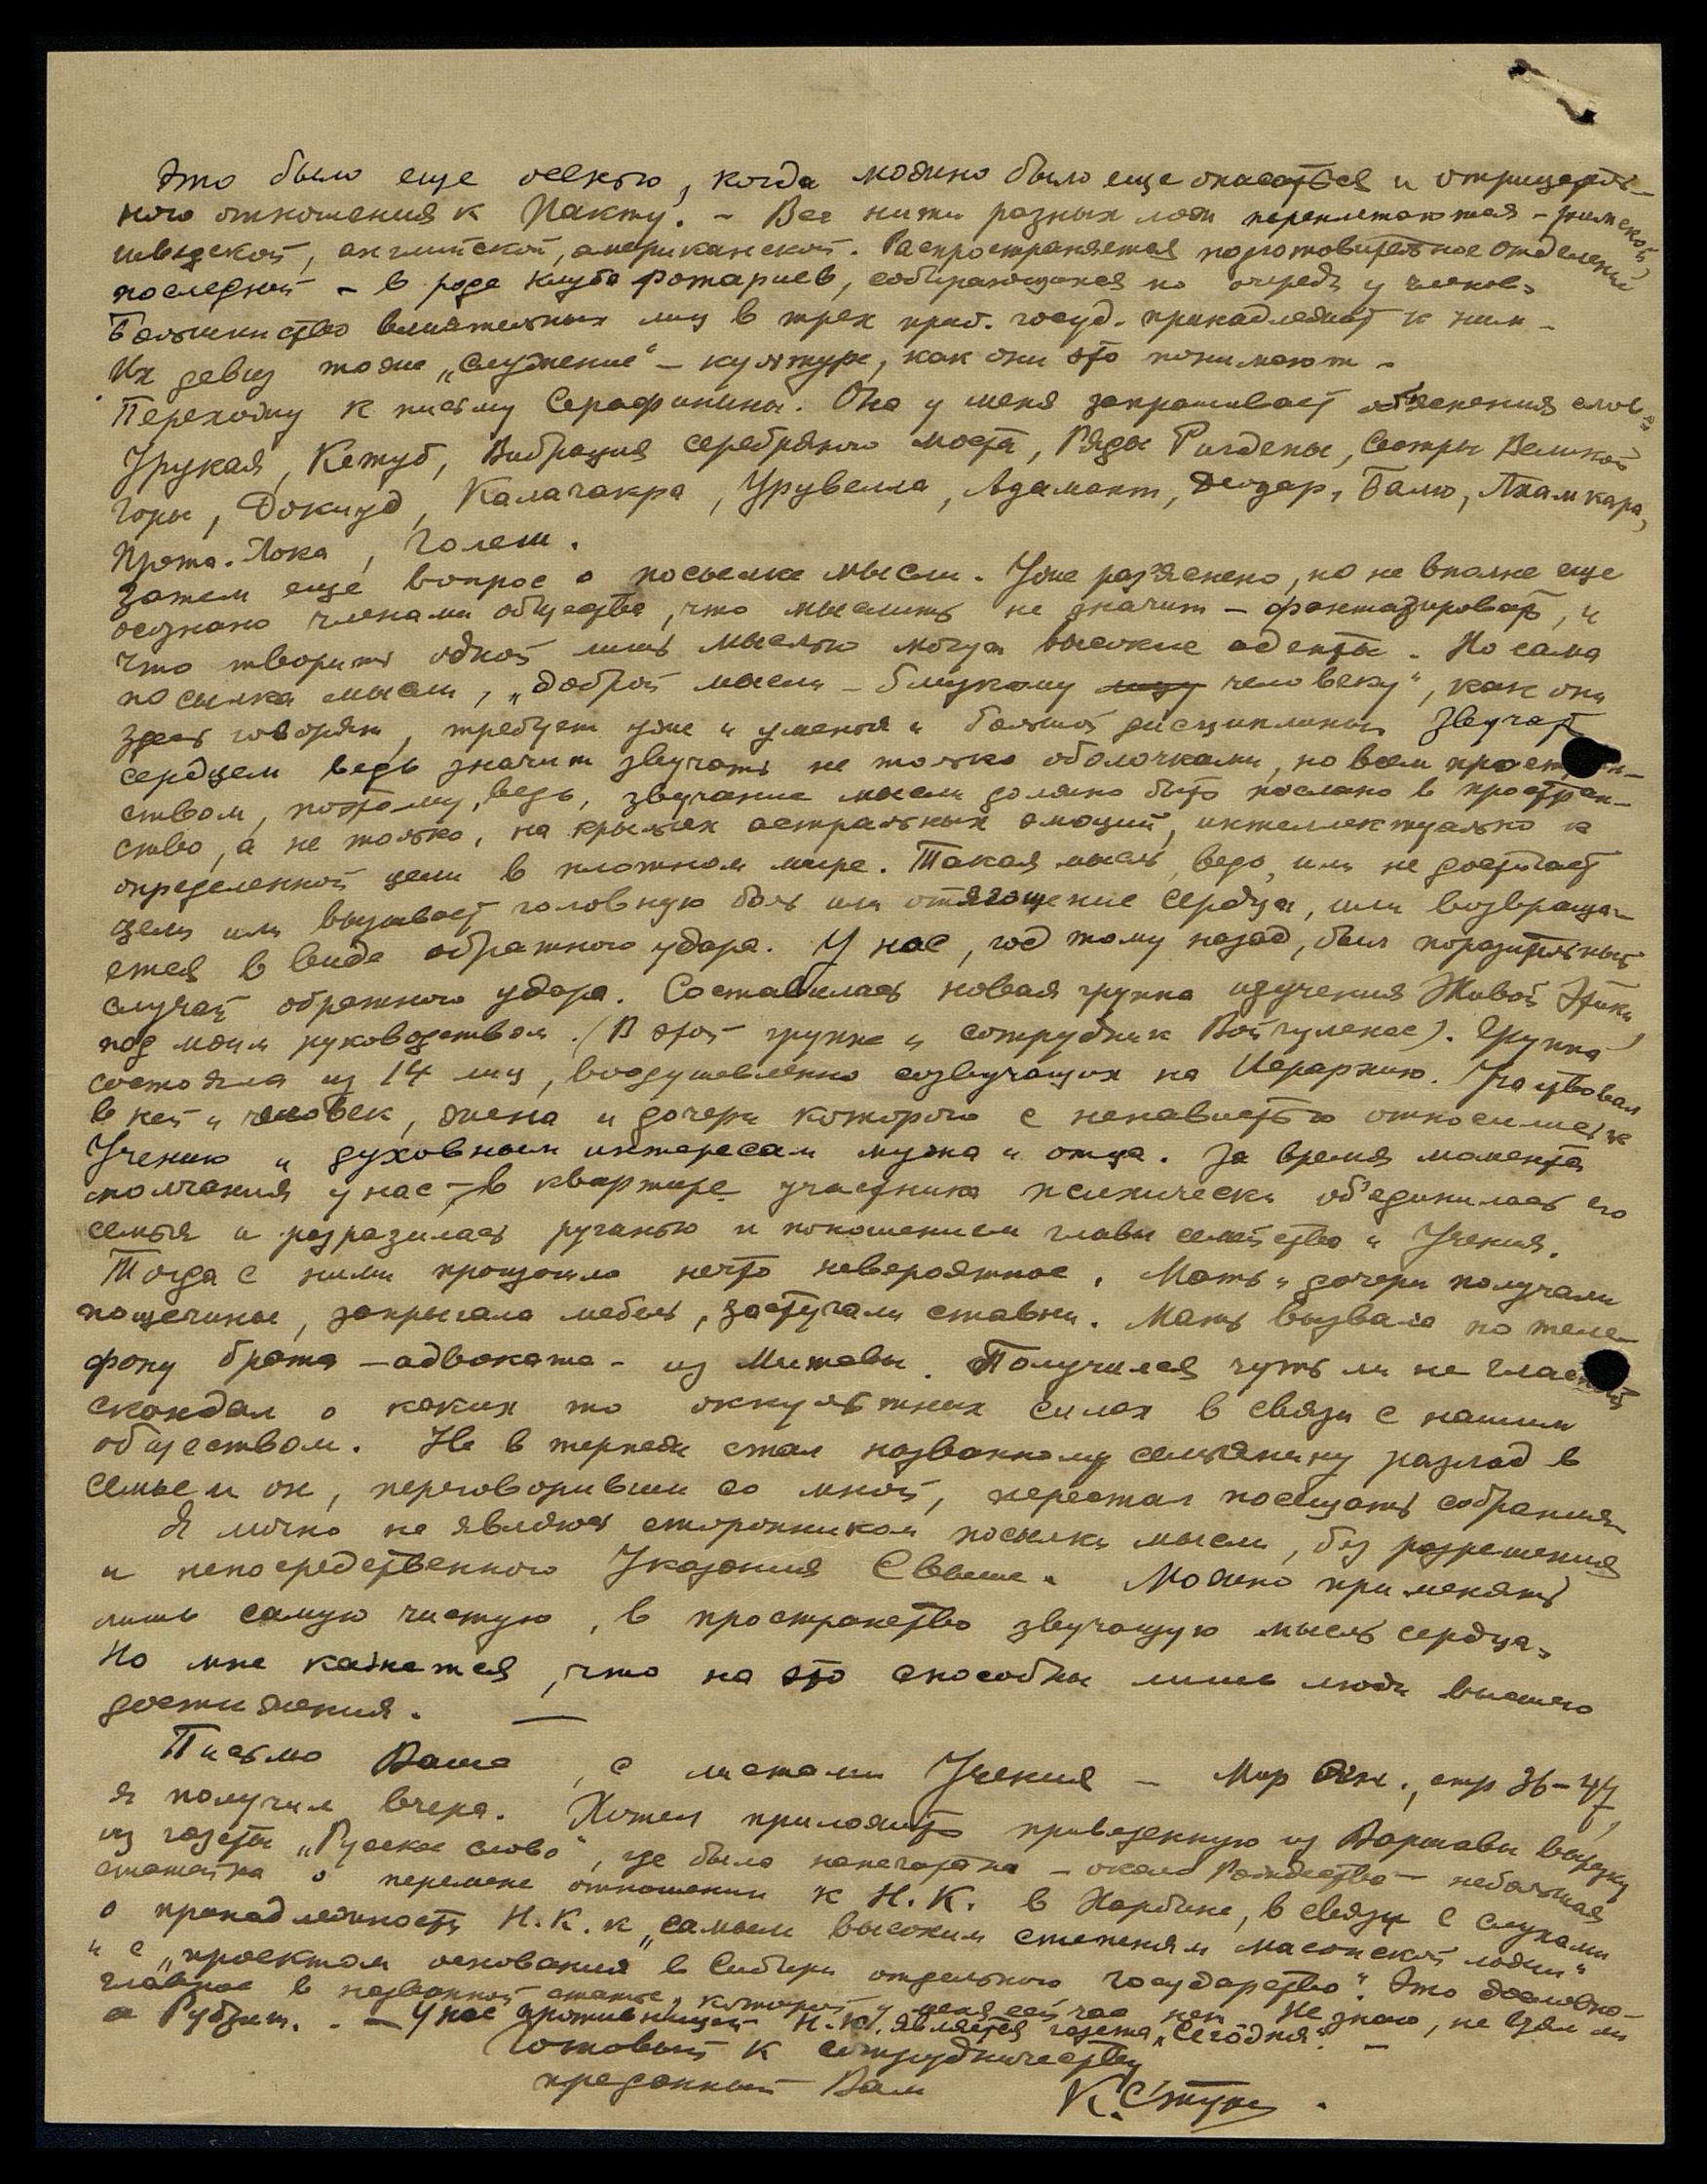 Это было еще осенью, когда можно было еще опасаться и отрицатель-
ного отношения к Пакту. – Все нити разных лож переплетаются –
шведской, английской, американской. Распространяется подготовительное отделение
последней – в роде клуба Ротариев, собирающихся по очереди у членов.
Большинство влиятельных лиц в трех приб. госуд. принадлежат к ним –
Их девиз тоже „служение“ – культуре, как они это понимают –
Перехожу к письму Серафинины. Она у меня запрашивает об'яснения слов:
Урукая, Кетуб, Вибрация серебряного моста, Ригдены, Сестры Великой
Горы, Докиуд, Калачакра, Урувелла, Адамант, Деодар, Балю,
Лока, Голем.
Затем еще вопрос о посылке мысли. Уже раз'яснено, но не вполне еще
осознано членами общества, что мыслить не значит – фантазировать, и
что творить одной лишь мыслью могут высокие адепты. Но сама
посылка мысли, „доброй мысли – близкому человеку“, как они
здесь говорят, требует уже и уменья и большой дисциплины. Звучать
сердцем ведь значит звучать не только оболочками, но всем простран-
ством, поэтому, ведь, звучание мысли должно быть послано в простран-
ство, а не только, на крыльях астральных эмоций, интеллектуально к
определенной цели в плотном мире. Такая мысль, ведь, или не достигает
цели или вызывает головную боль или отягощение сердца, или возвраща-
ется в виде обратного удара. У нас, год тому назад, был поразительный
случай обратного удара. Составилась новая группа изучения Живой Этики,
под моим руководством. (В этой группе и сотрудник Войчуленас). Группа
состояла из 14 лиц, воодушевленно созвучащих на Иерархию. Участвовал
в ней и человек, жена и дочери которого с ненавистью относились к
Учению и духовным интересам мужа и отца. За время момента
молчания у нас – в квартире участника психически об'единилась его
семья и разразилась руганью и поношением главы семейства и Учения.
Тогда с ними произошло нечто невероятное. Мать и дочери получали
пощечины, запрыгала мебель, застучали ставни. Мать вызвала по теле-
фону брата – адвоката – из Митавы. Получился чуть ли не гласный
скандал о каких то оккультных силах в связи с нашим
обществом. Не в терпеж стал названному семьянину разлад в
семье и он, переговоривши со мной, перестал посещать собрания.
Я лично не являюсь сторонником посылки мысли, без разрешения
и непосредственного Указания Свыше. Можно применять
лишь самую чистую, в пространство звучащую мысль сердца.
Но мне кажется, что на это способны лишь люди высшего
достижения. —
Письмо Ваше, с листами Учения – Мир Огн., стр 36–47,
я получил вчера. Хотел приложить привезенную из Варшавы вырезку
из газеты „Русское слово“, где была напечатана – около Рождества – небольшая
статейка о перемене отношения к Н.К. в Харбине, в связи с слухами
о принадлежности Н.К. к „самым высоким степеням масонской ложи“
и с „проектом основания в Сибири отдельного государства“. Это дословно –
главное в названной статье, которой у меня сейчас нет. Не знаю, не взял ли
ее Рудзит. – У нас противницей Н.К. является газета „Сегодня“. –
Готовый к сотрудничеству
преданный Вам
К. Стуре.